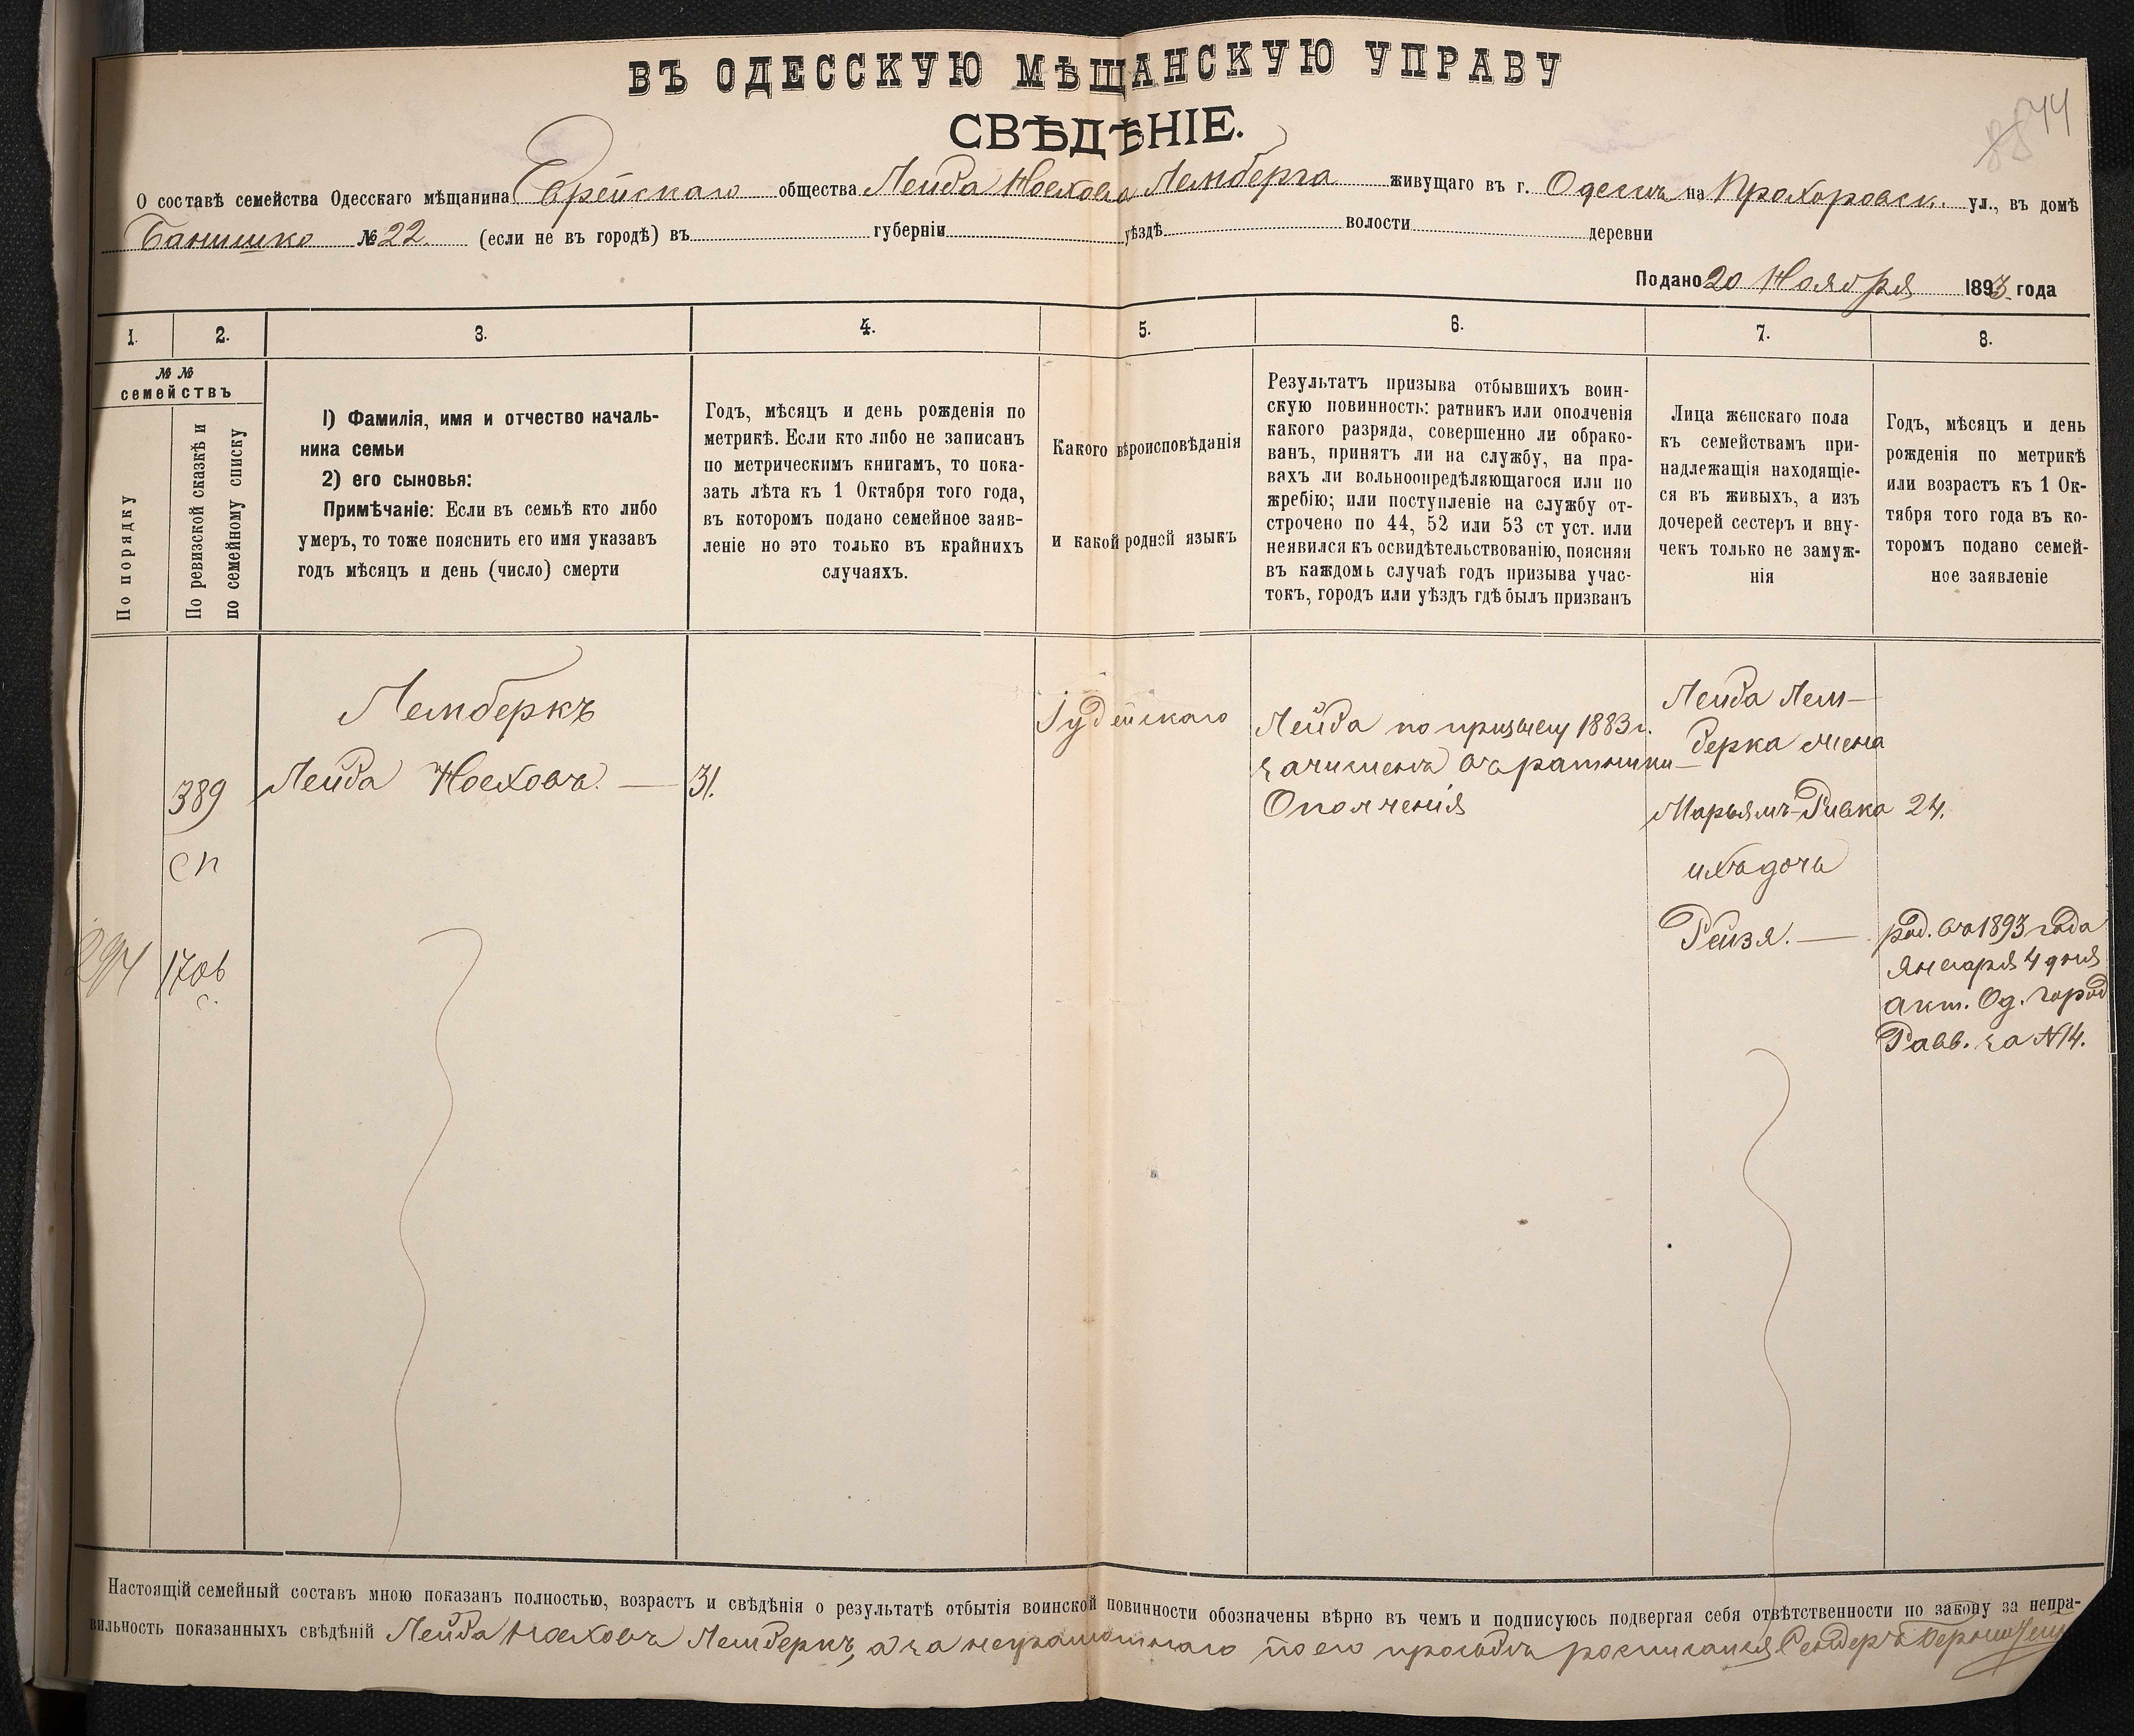 ВЪ ОДЕССКУЮ МѢЩАНСКУЮ УПРАВУ
СВѢДѢНІЕ.
44
О составѣ семейства Одесскаго мѣщанина Еврейскаго общества Лейба Ноехова Лемберга живущаго въ г. Одессѣ на Прохоровск. ул., въ домѣ
№ 22. (если не въ городѣ) въ губерніи уѣздѣ волости деревни
Подано 20 Ноября 1893 года
1. 2. 3. 4. 5. 6. 7. 8.
№ №
семействъ
По порядку
По ревизской сказкѣ и
по семейному списку
1) Фамилія, имя и отчество началь-
ника семьи
2) его сыновья:
Примѣчаніе: Если въ семьѣ кто либо
умеръ, то тоже пояснить его имя указавъ
годъ мѣсяцъ и день (число) смерти
Годъ, мѣсяцъ и день рожденія по
метрикѣ. Если кто либо не записанъ
по метрическимъ книгамъ, то пока-
зать лѣта къ 1 Октября того года,
въ которомъ подано семейное заяв-
леніе но это только въ крайнихъ
случаяхъ.
Какого вѣроисповѣданія
и какой родной языкъ
Результатъ призыва отбывшихъ воин-
скую повинность: ратникъ или ополченія
какого разряда, совершенно ли обрако-
ванъ, принятъ ли на службу, на пра-
вахъ ли вольноопредѣляющагося или по
жребію; или поступленіе на службу от-
строчено по 44, 52 или 53 ст уст. или
неявился къ освидѣтельствованію, поясняя
въ каждомъ случаѣ годъ призыва учас-
токъ, городъ или уѣздъ гдѣ былъ призванъ
Лица женскаго пола
къ семействамъ при-
надлежащія находящіе-
ся въ живыхъ, а изъ
дочерей сестеръ и вну-
чекъ только не замуж-
нія
Годъ, мѣсяцъ и день
рожденія по метрикѣ
или возрастъ къ 1 Ок-
тября того года въ ко-
торомъ подано семей-
ное заявленіе
389
сп
1706
с.
294
Лемберкъ
Лейба Ноеховъ. — 31.
Іудейскаго
Лейба по призыву 1883 г.
зачисленъ въ ратники
Ополченія
Лейба Лем-
берка жена
Марьямъ-Ривка 24.
ихъ дочь
Рейзя. —
род. въ 1893 года
Января 4 дня
акт. Од. Город
Равв. за № 14.
Настоящій семейный составъ мною показанъ полностью, возрастъ и свѣдѣнія о результатѣ отбытія воинской повинности обозначены вѣрно въ чемъ и подписуюсь подвергая себя отвѣтственности по закону за непра-
вильность показанныхъ свѣдѣній Лейба Ноеховъ Лемберкъ, а за неграмотнаго по его просьбѣ росписался Сендеръ